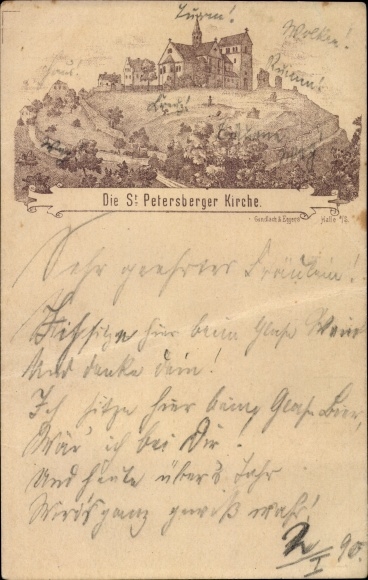 Turm!
Wolken!
Haus!
Ruinen!
Weg
Die St Petersberger Kirche.
Gundlach & Eggers Halle a/S.
Sehr geehrtes Fräulein!
Ich sitze hier beim Glase Wein
Und denke dein!
Ich sitze hier beim Glase Bier,
Wär' ich bei Dir.
Und heute über's Jahr
Wird's ganz gewiß wahr!
2/I 90.